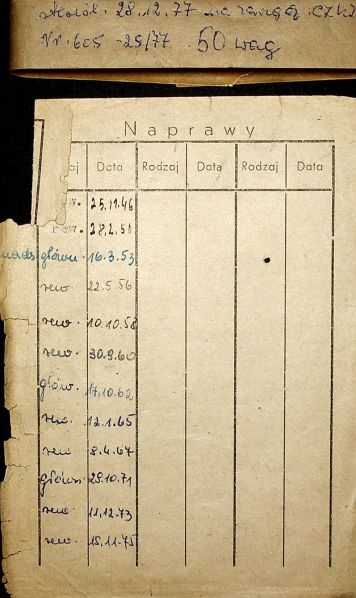 28.12.77 na
Nr. 605 -25/77 50 wag
Naprawy
aj Data Rodzaj Data Rodzaj Data
rew. 25.11.46
rew. 28.2.51
główn. 16.3.53
rew. 22.5.56
rew. 10.10.58
rew. 30.9.60
główn. 17.10.62
rew. 12.1.65
rew 8.4.67
główn. 29.10.71
rew 11.12.73
rew. 15.11.75